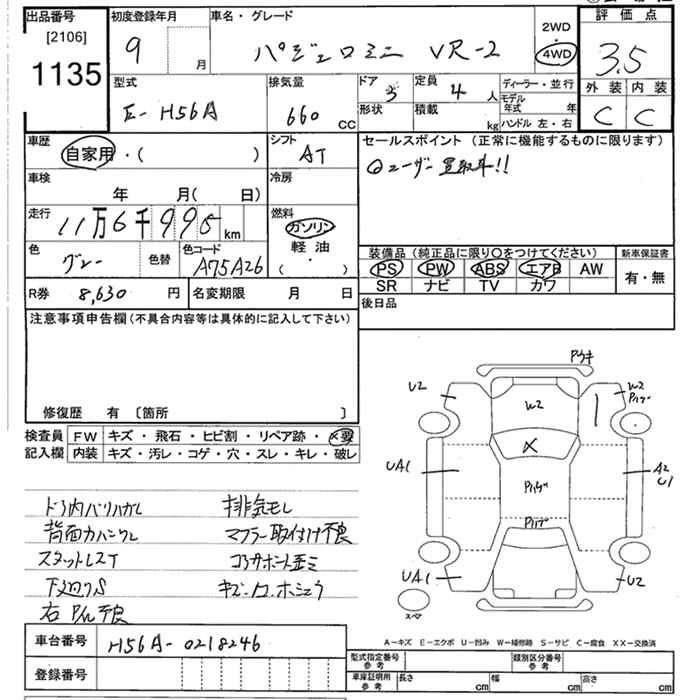 出品番号
[2106]
1135
初度登録年月
9 月
車名・グレード
パジェロミニ VR-2
2WD
4WD
評価点
3.5
外装 内装
C C
型式
E-H56A
排気量
660 cc
ドア 3
定員 4 人
ディーラー・並行
形状
積載 kg
モデル年式 年
ハンドル 左・右
車歴
自家用・( )
シフト
AT
セールスポイント(正常に機能するものに限ります)
ユーザー買取車!!
車検
年 月( 日)
冷房
走行
11万6千995 km
燃料
ガソリン
軽油
( )
色
グレー
色替
色コード
A75A26
装備品(純正品に限り〇をつけてください)
新車保証書
PS PW ABS エアB AW
SR ナビ TV カワ
有・無
R券 8,630 円
名変期限 月 日
後日品
注意事項申告欄(不具合内容等は具体的に記入して下さい)
修復歴 有 〔箇所 〕
検査員記入欄
FW キズ・飛石・ヒビ割・リペア跡・×要
内装 キズ・汚レ・コゲ・穴・スレ・キレ・破レ
U2
W2
W2
UA1
A2
U1
UA1
U2
スペア
排気モレ
背面カバー
マフラー取付け不良
コアサポート歪ミ
下廻りS
A-キズ E-エクボ U-凹み W-補修跡 S-サビ C-腐食 XX-交換済
車台番号 H56A-0218246
登録番号
型式指定番号 参考
類別区分番号 参考
車庫証明用 参考
長さ cm
幅 cm
高さ cm